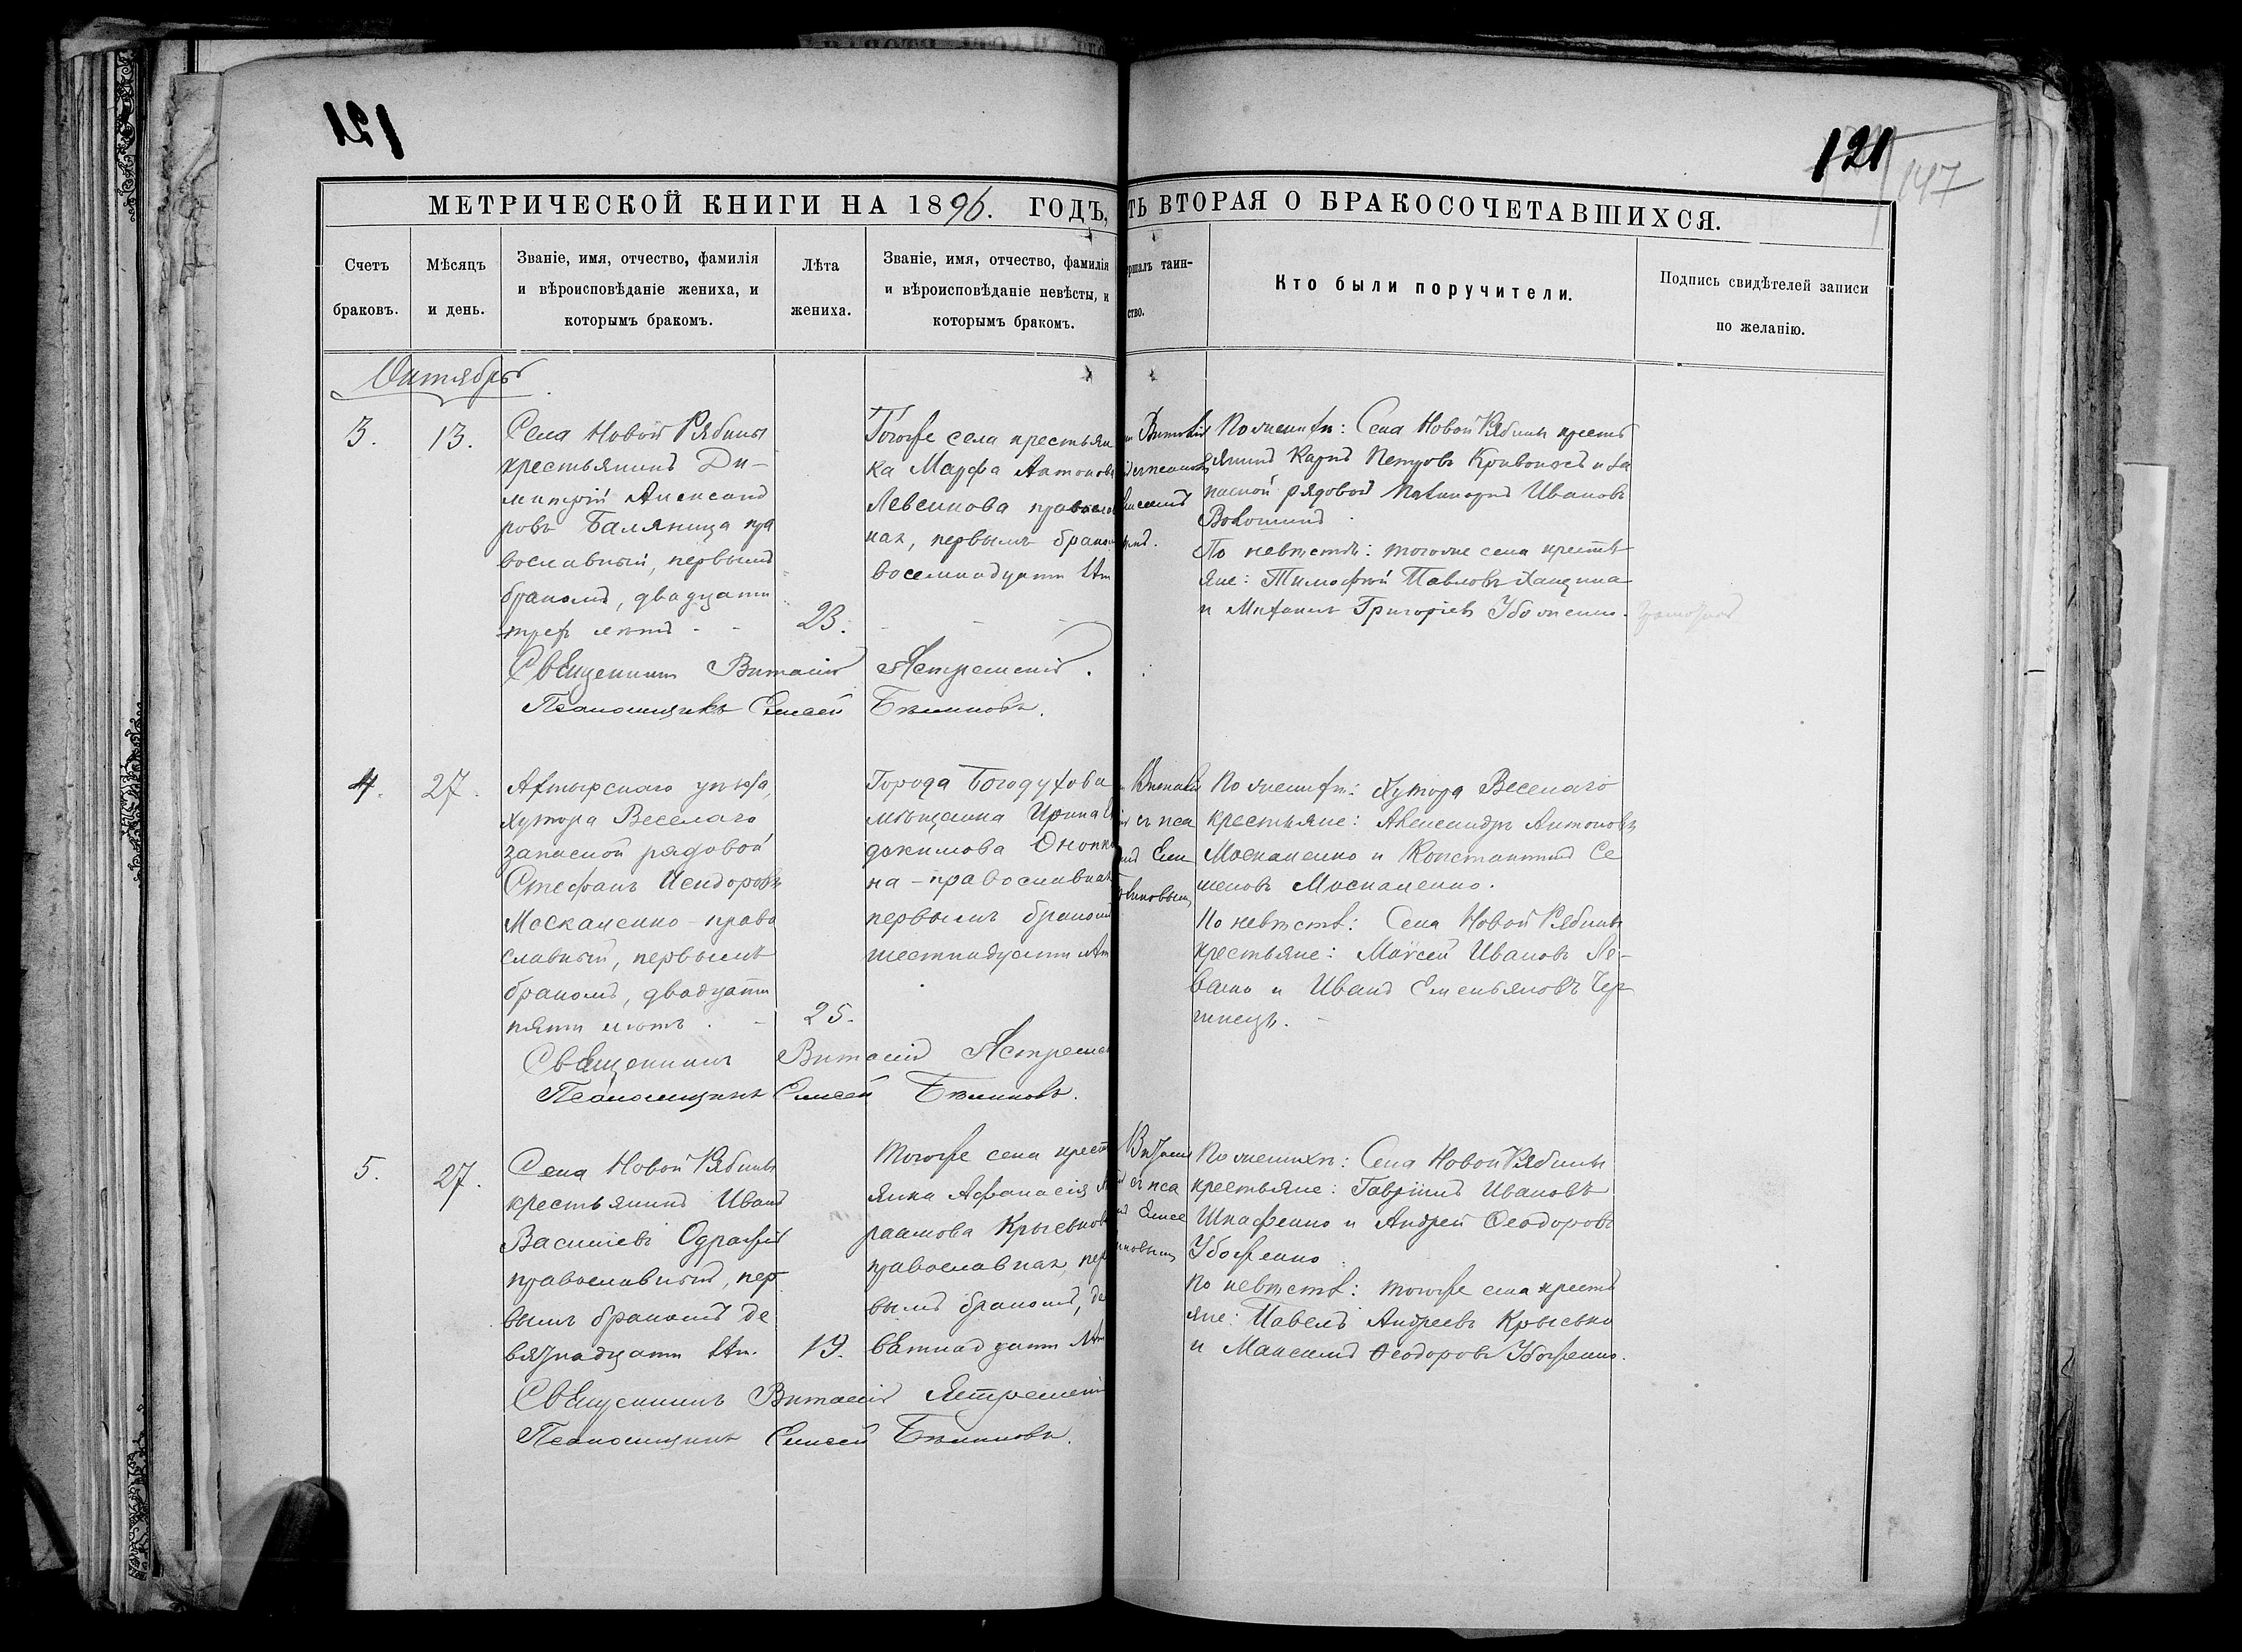 121
121
147
МЕТРИЧЕСКОЙ КНИГИ НА 1896. ГОДЪ,
ТЬ ВТОРАЯ О БРАКОСОЧЕТАВШИХСЯ.
Счетъ
браковъ.
Мѣсяцъ
и день.
Званіе, имя, отчество, фамилія
и вѣроисповѣданіе жениха, и
которымъ бракомъ.
Лѣта
жениха.
Званіе, имя, отчество, фамилія
и вѣроисповѣданіе невѣсты, и
которымъ бракомъ.
ершалъ таин-
ство.
Кто были поручители.
Подпись свидѣтелей записи
по желанію.
Октябрь
3.
13.
Села Новой Рябины
крестьянинъ Ди-
митрій Александ
ровъ Баляница пра
вославный, первымъ
бракомъ, двадцати
трехъ лѣтъ
23.
Тогоже села крестьян
ка Марфа Антонова
православ
ная, первымъ бракомъ
восемнадцати лѣт
Виталій
По женихѣ: Села Новой Рябины кресть
янинъ Карпъ Петровъ Кривоносъ и за
пасной рядовой Никаноръ Ивановъ
Волошинъ.
По невѣстѣ: тогоже села кресть
яне: Тимофей Павловъ
и Михаилъ Григорьевъ Убоженко.
Священникъ Виталій Ястремскій.
Псаломщикъ Елисей Бѣликовъ.
4.
27.
Ахтырскаго уѣзда,
хутора Веселаго
запасной рядовой
Стефанъ Исидоровъ
Москаленко - право
славный, первымъ
бракомъ, двадцати
пяти лѣтъ.
25.
Города Богодухова
мѣщанка Ирина Ев
докимова
на - православная
первымъ бракомъ
шестнадцати лѣт
Виталій
съ пса
Ели
ѣликовым
По женихѣ: Хутора Веселаго
крестьяне: Александръ Антоновъ
Москаленко и Константинъ Се
меновъ Москаленко.
По невѣстѣ: Села Новой Рябины
крестьяне: Моѵсей Ивановъ Ле-
вашко и Иванъ Емельяновъ Чер
нинецъ.
Священникъ Виталій Ястремск
Псаломщикъ Елисей Бѣликовъ.
5.
27.
Села Новой Рябины
крестьянинъ Иванъ
Василіевъ Одражій
православный, пер
вымъ бракомъ де
вятнадцати лѣт.
19.
Тогоже села крест
янка Афанасія Ав
раамова Крысько
православная, пер
вымъ бракомъ, де
вятнадцати лѣт
Виталі
съ пса
Елисе
иковым
По женихѣ: Села Новой Рябины
крестьяне: Гавріилъ Ивановъ
и Андрей Ѳеодоровъ
Убоженко.
По невѣстѣ: тогоже села кресть
яне: Павелъ Андреевъ Крысько
и Максимъ Ѳеодоровъ Убоженко.
Священникъ Виталій Ястремскій
Псаломщикъ Елисей Бѣликовъ.